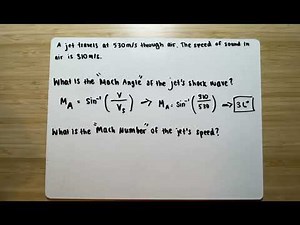 A jet travels at 530m/s through air. The speed of sound in
air is 310m/s.
What is the "Mach Angle" of the jet's shock wave?
MA = Sin⁻¹ (V/Vs) → MA = Sin⁻¹ (310/530) → 36°
What is the "Mach Number" of the jet's speed?